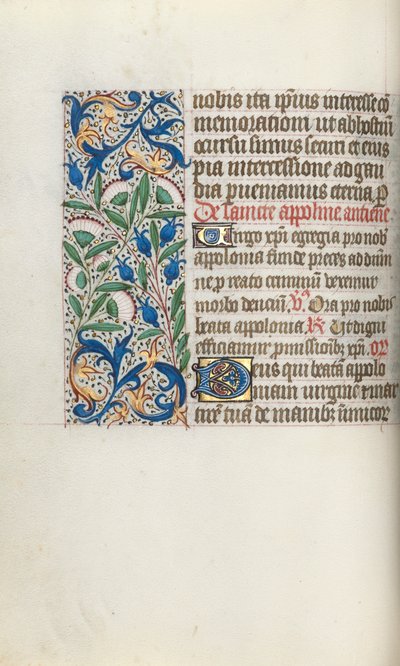 nobis ita ip̄ius interesse cō
memorationi, ut ab hostiū
ōcursu simus securi et eius
pia intercessione ad gau
dia p̱ueniamus eterna. P̱
De saincte appoline antiene
Virgo xp̄i egregia pro nob̄
appolonia funde preces ad dūm
ne p̱ reatū criminū vexemur
morbo denciū. V̄. Ora pro nobis
beata appolonia. R̄. Ut digni
efficiamur p̱missioib̄ꝫ xp̄i. or̄
Deus qui beatā appolo
niam virginē et mar
tirē tuā de manibꝫ inimicor